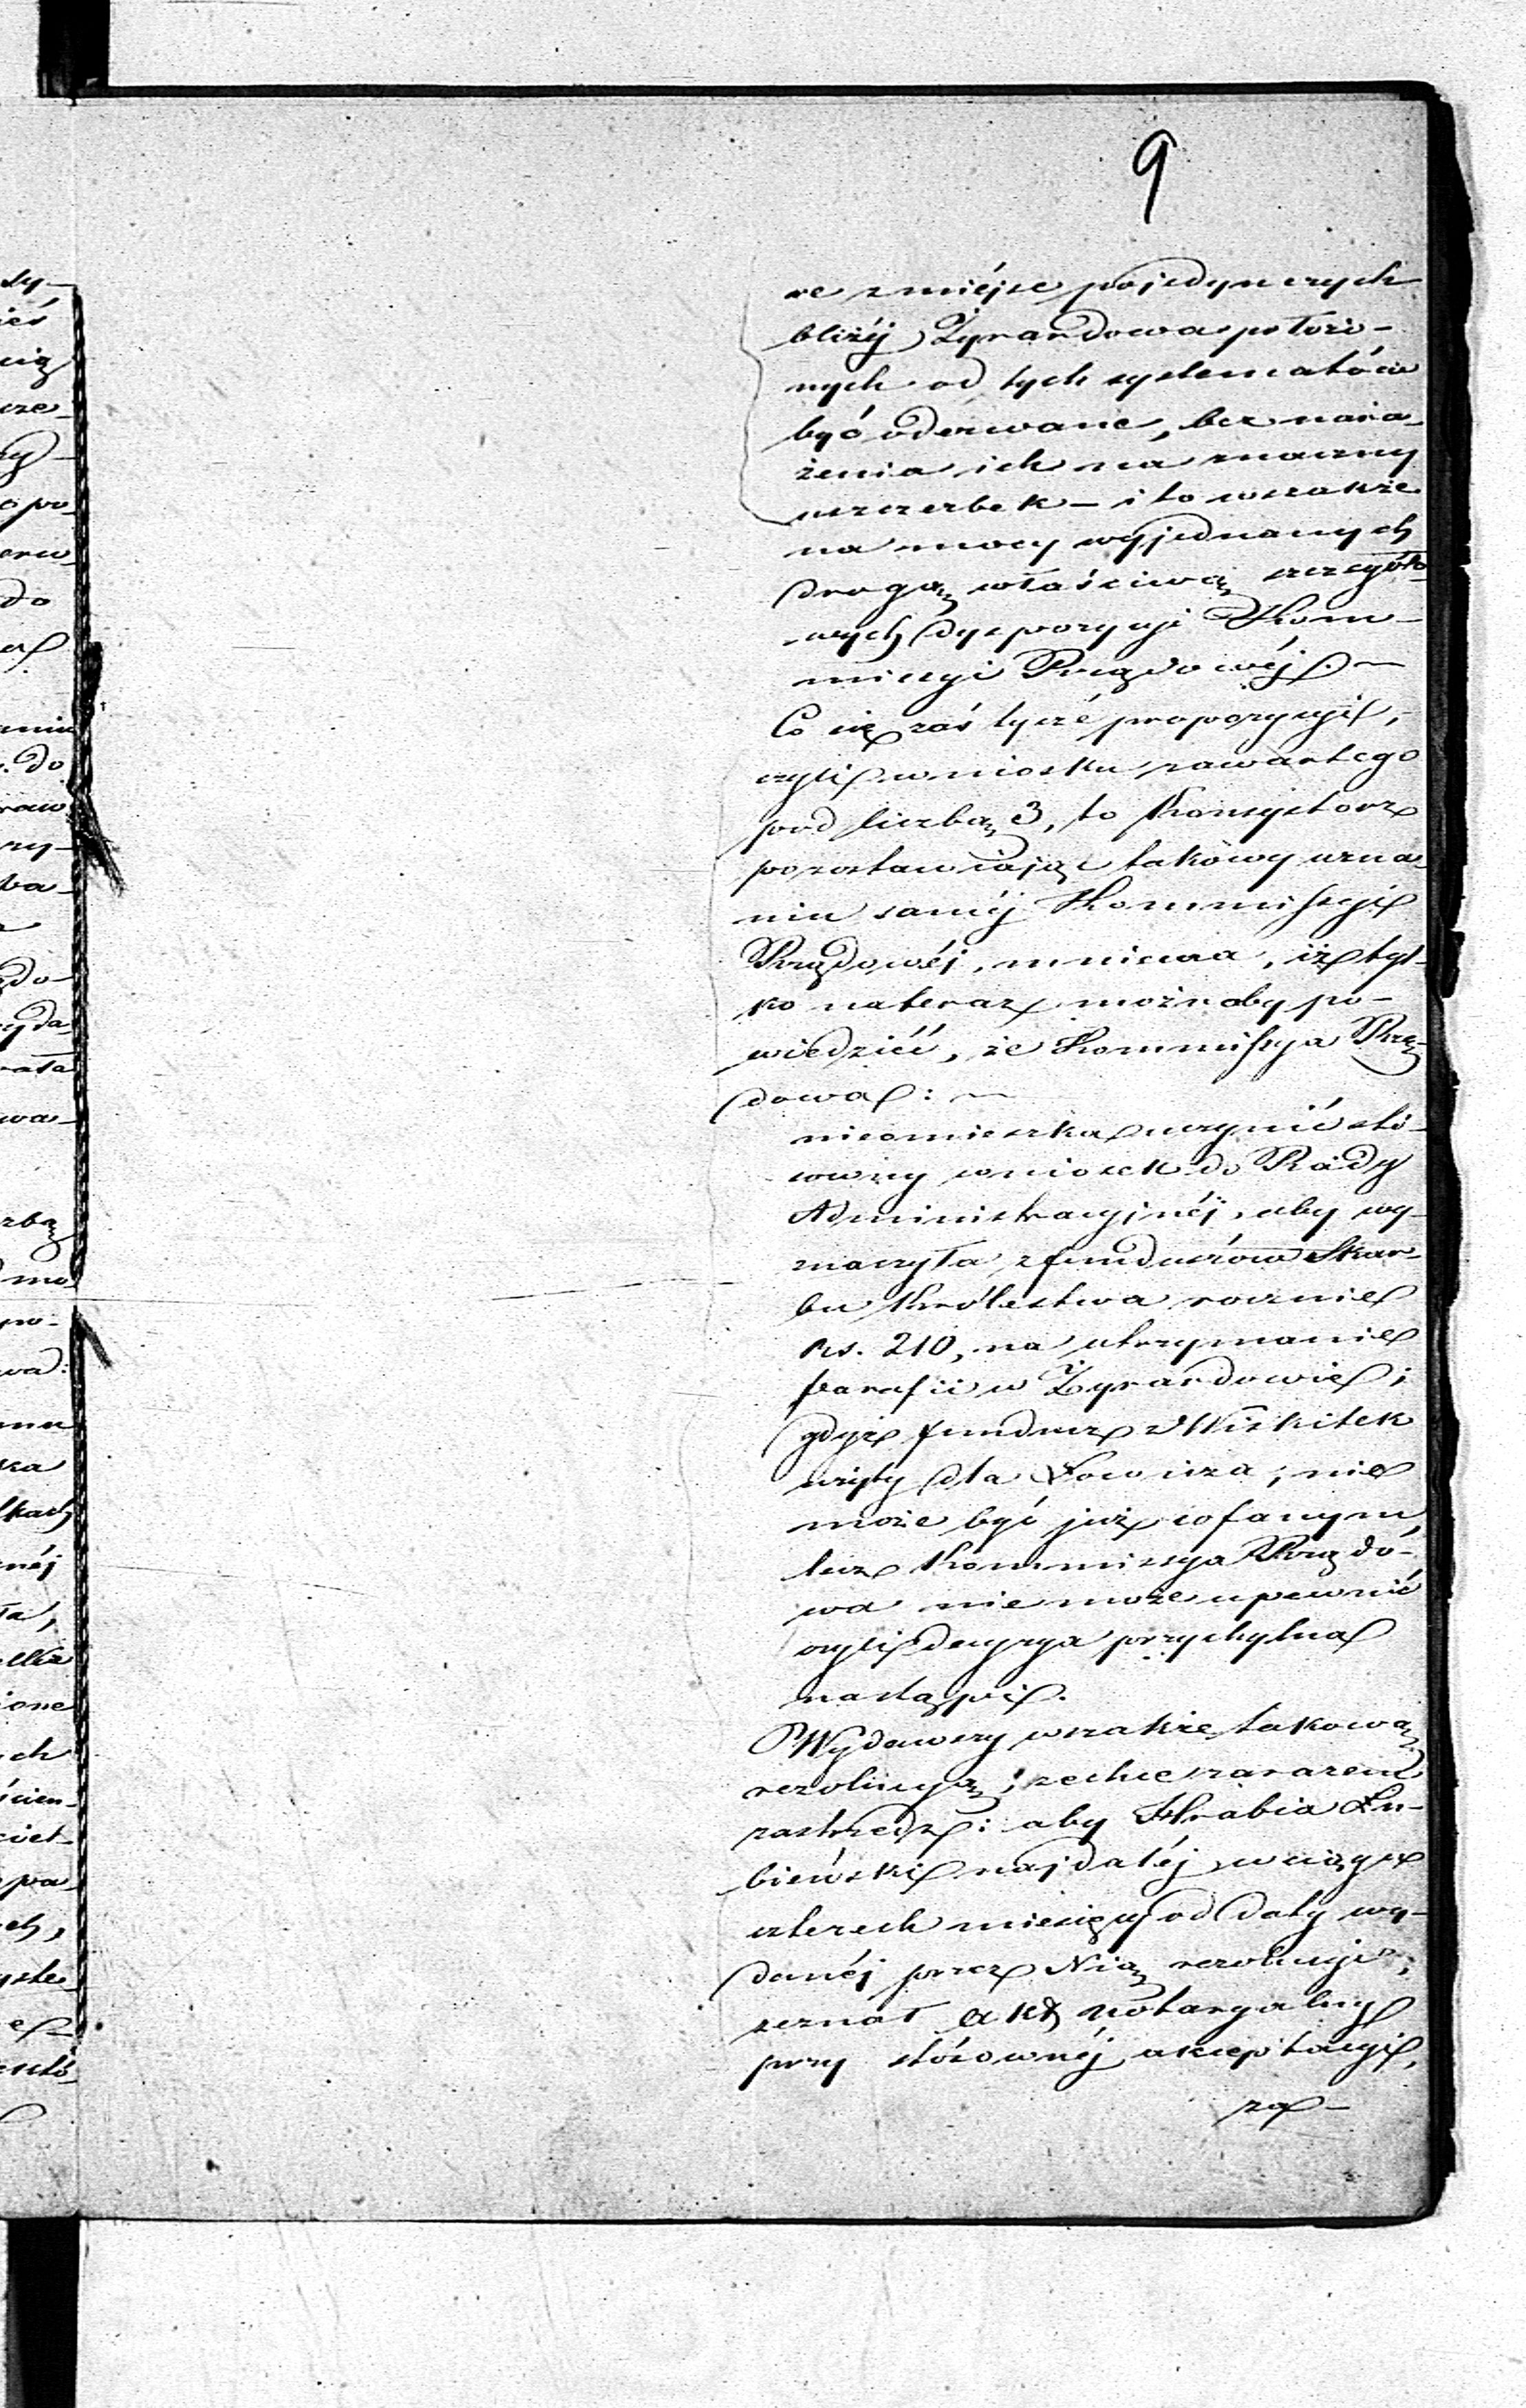 9
re z miéjsc pojedynczych
bliżéj Żyrardowa położo-
nych od tych systematów
być oderwane, bez nara-
żenia ich na znaczny
uszczerbek – i to wszakże
na mocy wyjednanych
drogą właściwą szczegóło-
wych dyspozycyi Kom-
missyi Rządowéj. –
Co się zaś tyczé propozycyi,
czyli wniosku zawartego
pod liczbą 3, to Konsystorz
pozostawiając takowy uzna
niu saméj Kommissyi
Rządowéj, mniema, iż tyl-
ko na teraz możnaby po-
wiedziéć, że Kommissya Rzą-
dowa: –
niéomieszka uczynić stó-
sowny wniosek do Rady
Administracyjnéj, aby wy-
znaczyła z funduszów Skar-
bu Królestwa rocznie
rs. 210, na utrzymanie
parafii w Żyrardowie;
gdyż fundusz z Wiskitek
użyty dla Łowicza, nie
może być już cofanym,
lecz Kommissya Rządó-
wa nie może upewnić
czyli decyzya przychylna
nastąpi.
Wydawszy wszakże takową
rezolucyą, zechce zarazem
zastrzedz: aby Hrabia Łu-
bieński najdaléj w ciągu
czterech miesięcy od daty wy-
danéj przez Nią rezolucyi,
zeznał akt notaryalny
przy stósownéj akceptacyi,
za-